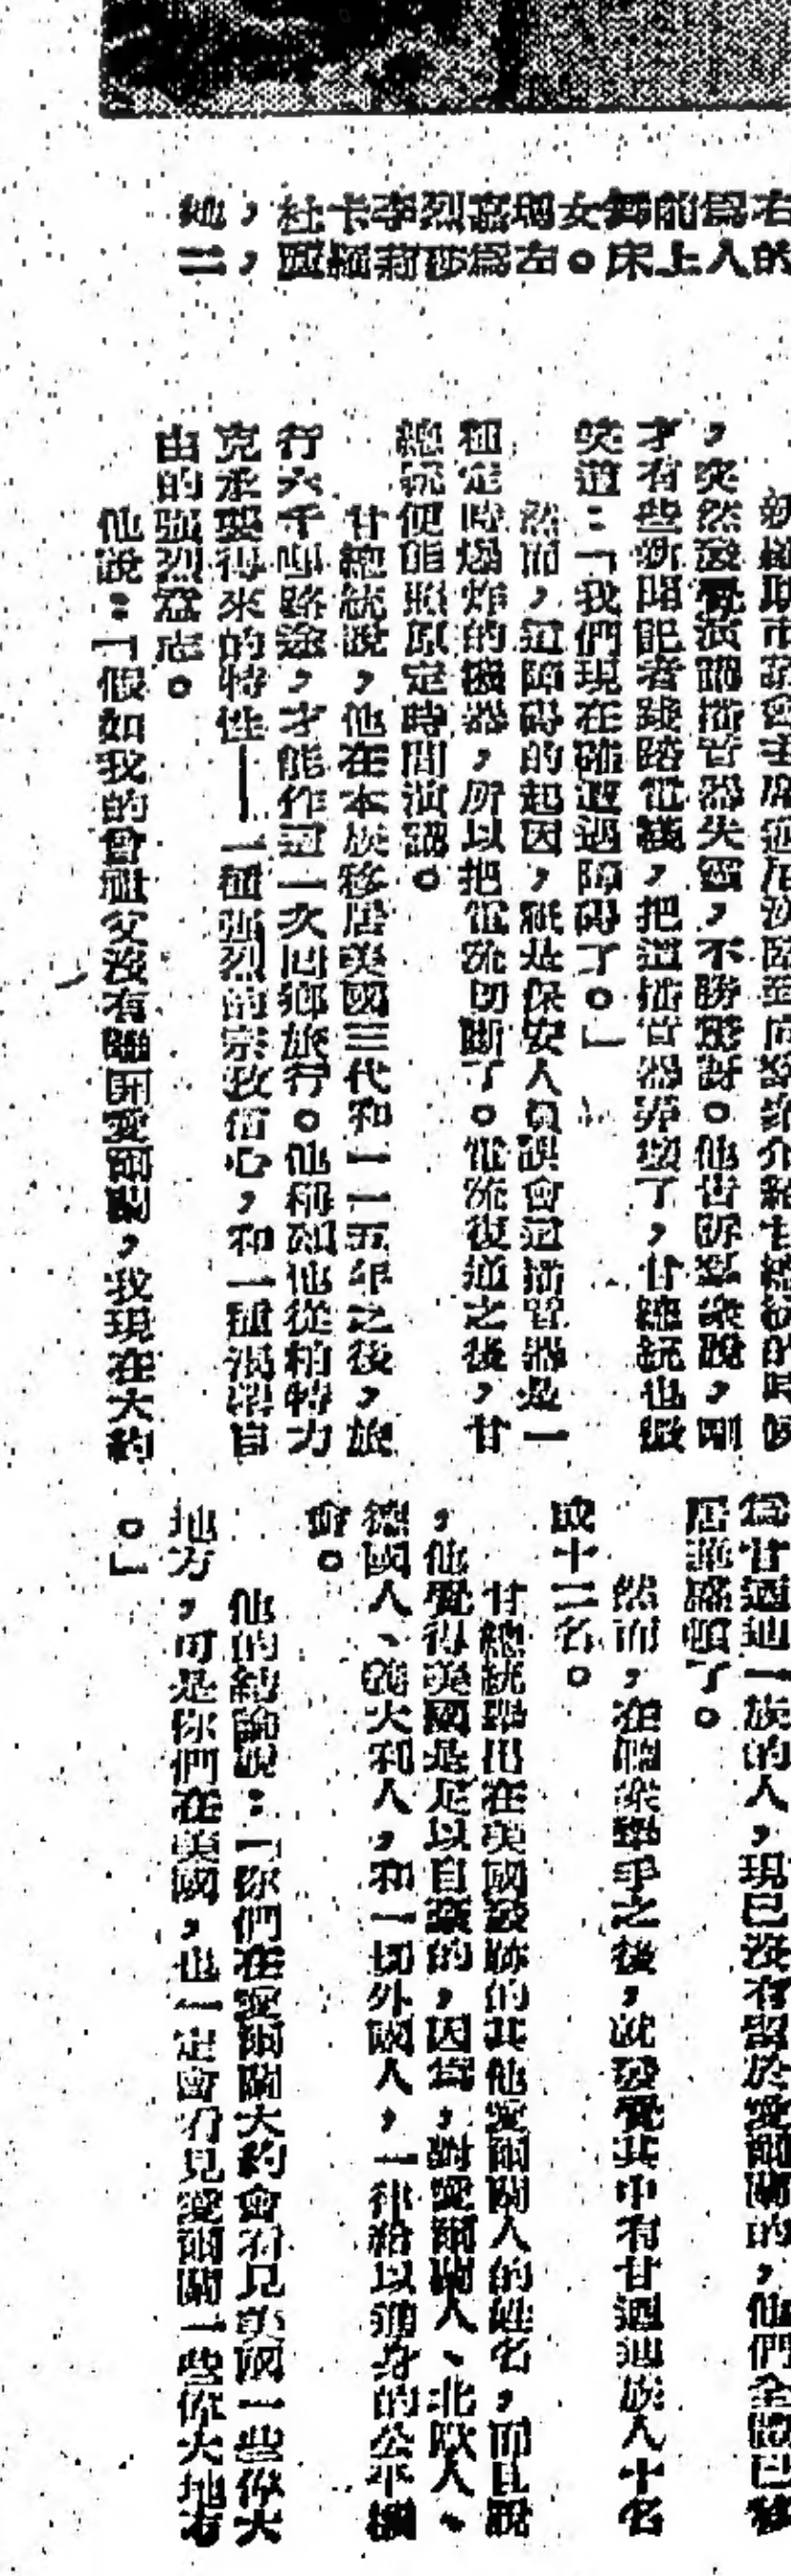 右爲前舞女瑪嘉烈李卡杜，她
的人上床。左爲莎莉羅，二
，突然發覺演講播音器失靈，不勝驚訝。他告訴羣衆說，剛
才有些新聞記者踐踏電綫，把這播音器弄壞了，甘總統也微
笑道：「我們現在確遭遇障碍了。」
然而，這障碍的起因，祇是保安人員誤會這播音器是一
種定時爆炸的機器，所以把電流切斷了。電流復通之後，甘
總統便能照原定時間演講。
甘總統說，他在本族移居美國三代和一一五年之後，旅
行六千哩路途，才能作這一次回鄉旅行。他稱頌他從柏特力
克承襲得來的特性——一種強烈的宗教信心，和一種渴望自
由的強烈意志。
他說：「假如我的曾祖父沒有離開愛爾蘭，我現在大約
爲甘迺迪一族的人，現已沒有留於愛爾蘭的，他們全體已移
居華盛頓了。
然而，在聽衆舉手之後，就發覺其中有甘迺迪族人十名
或十二名。
甘總統舉出在美國發跡的其他愛爾蘭人的姓名，而且說
，他覺得美國是足以自豪的，因爲，對愛爾蘭人、北歐人、
德國人、義大利人，和一切外國人，一律給以進身的公平機
會。
他的結論說：「你們在愛爾蘭大約會看見美國一些偉大
地方，可是你們在美國，也一定會看見愛爾蘭一些偉大地方
。」